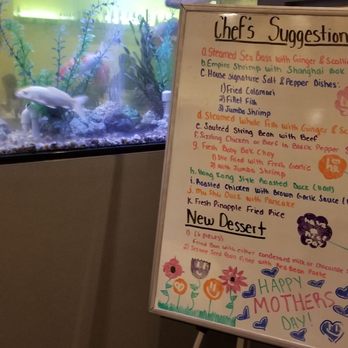 Chef's Suggestion
a. Steamed Sea Bass with Ginger & Scalli
b. Empire Shrimp with Shanghai Bok
c. House Signature Salt & Pepper Dishes:
1) Fried Calamari
2) Fillet Fish
3) Jumbo Shrimp
d. Steamed Whole Fish with Ginger & Sc
e. Sauteed String Bean with Beef
f. Sizzling Chicken or Beef in Black Pepper S
g. Fresh Baby Bok Choy
1) Stir Fried with Fresh Garlic
2) with Jumbo Shrimp
h. Hong Kong Style Roasted Duck (Half)
i. Roasted Chicken with Brown Garlic Sauce (H
j. Mu Shu Duck with Pancake
k. Fresh Pineapple Fried Rice
New Dessert
1) (6 pieces)
Fried Bun with either condensed milk or chocolate
2) Sesame Seed Ball filled with Red Bean Paste
I ♡ MOM
HAPPY
MOTHERS
DAY!